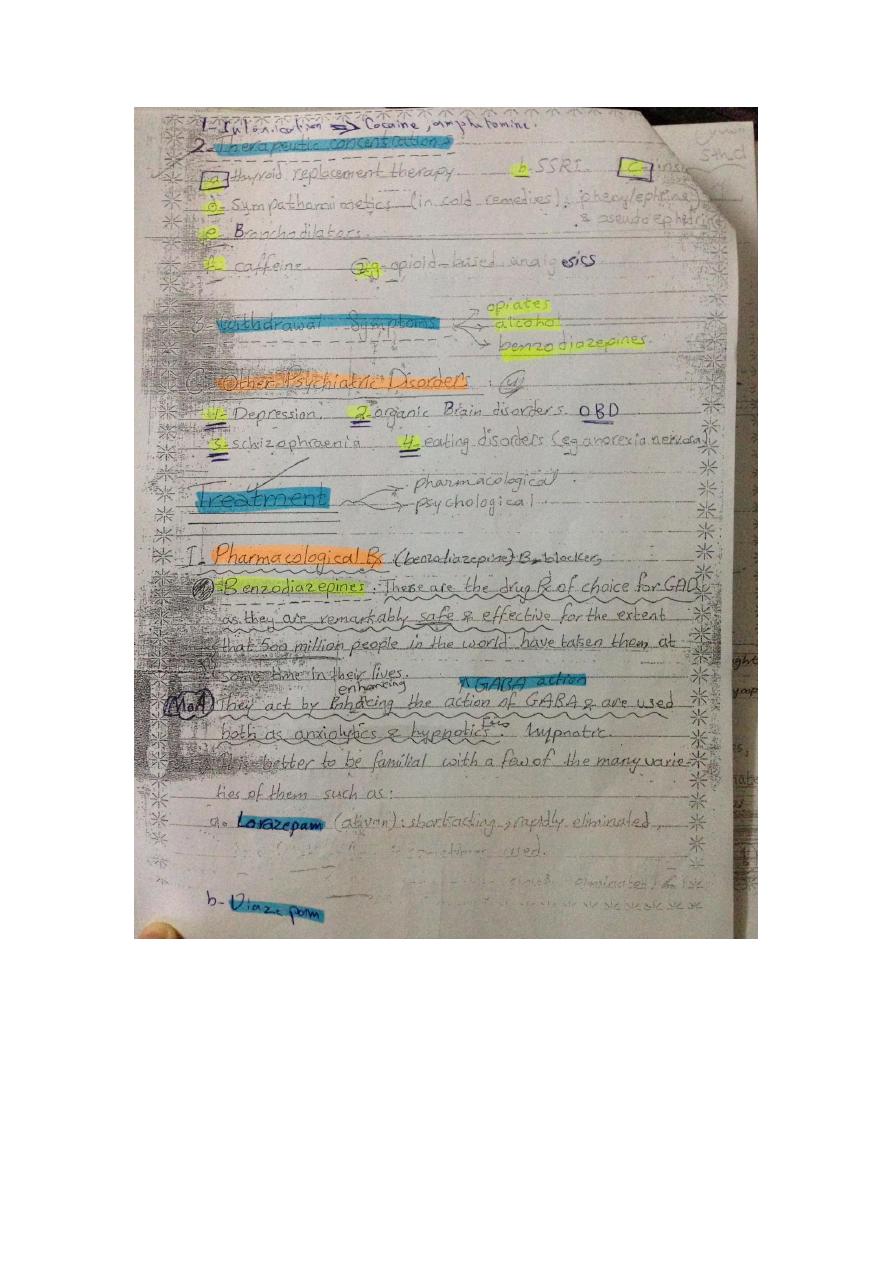 1- Intoxication => Cocaine, amphetamine.
2- Therapeutic concentrations
a- thyroid replacement therapy. b- SSRI c-
d- Sympathomimetics (in cold remedies): phenylephrine
& pseudoephedrine
e- Bronchodilators.
f- caffeine. g- opioid-based analgesics
opiates
3- withdrawal Symptoms alcohol
benzodiazepines.
C- Other Psychiatric Disorders: (4)
1- Depression. 2- organic Brain disorders. OBD
3- schizophraenia 4- eating disorders (eg anorexia nervosa)
pharmacological.
Treatment
psychological.
I- Pharmacological Rx (benzodiazepine) B-blockers
Benzodiazepines: These are the drug Rx of choice for GAD,
as they are remarkably safe & effective for the extent
that 500 million people in the world have taken them at
some time in their lives.
enhancing ↑ GABA action
MoA They act by Enhacing the action of GABA & are used
both as anxiolytics & hypnotics. hypnotic.
better to be familial with a few of the many varie-
ties of them such as:
a. Lorazepam (ativan): short acting, rapidly eliminated,
used.
eliminated,
b- Diazepam